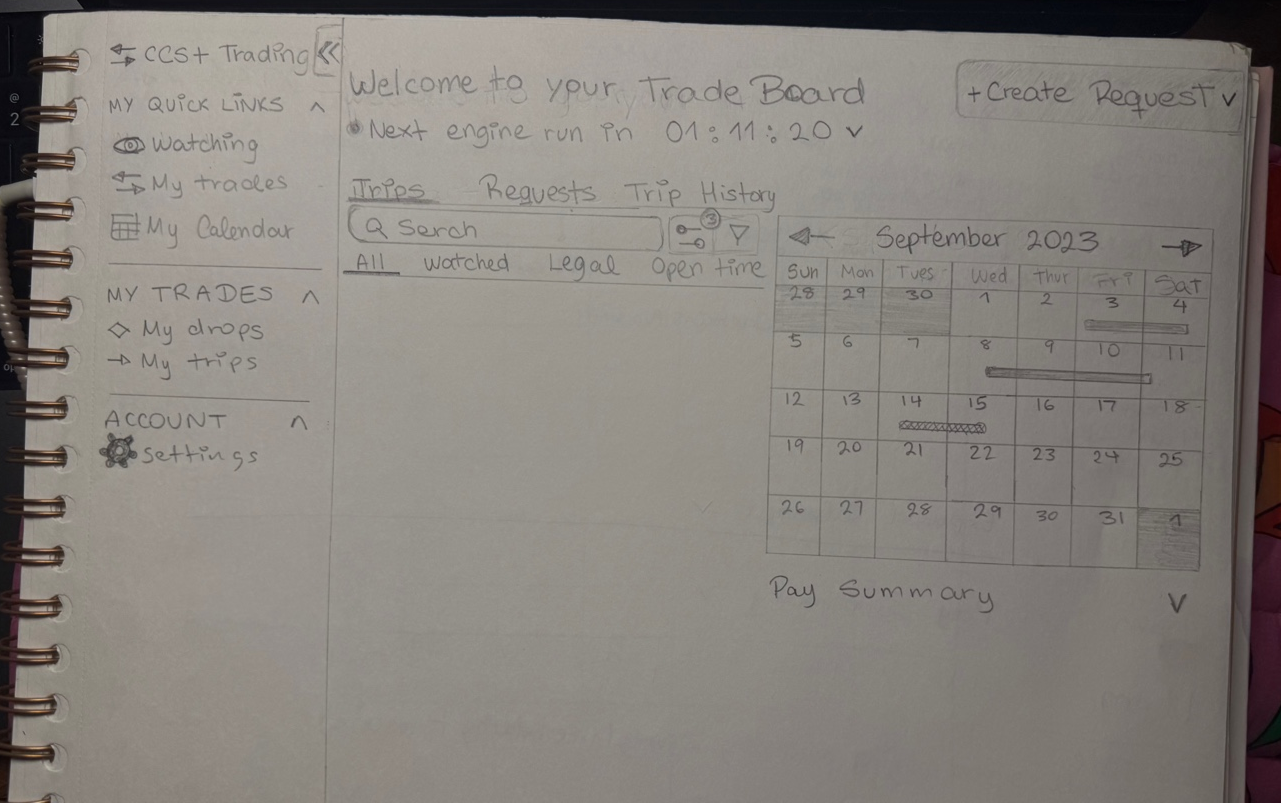 CCS+ Trading
MY QUICK LINKS ^
Watching
My trades
My Calendar
MY TRADES ^
My drops
My trips
ACCOUNT ^
Settings
Welcome to your Trade Board
Next engine run in 01:11:20 v
+Create Request v
Trips Requests Trip History
Serch
3
All Watched Legal Open time
September 2023
Sun Mon Tues Wed Thur Fri Sat
28 29 30 1 2 3 4
5 6 7 8 9 10 11
12 13 14 15 16 17 18
19 20 21 22 23 24 25
26 27 28 29 30 31 1
Pay Summary v
@
2